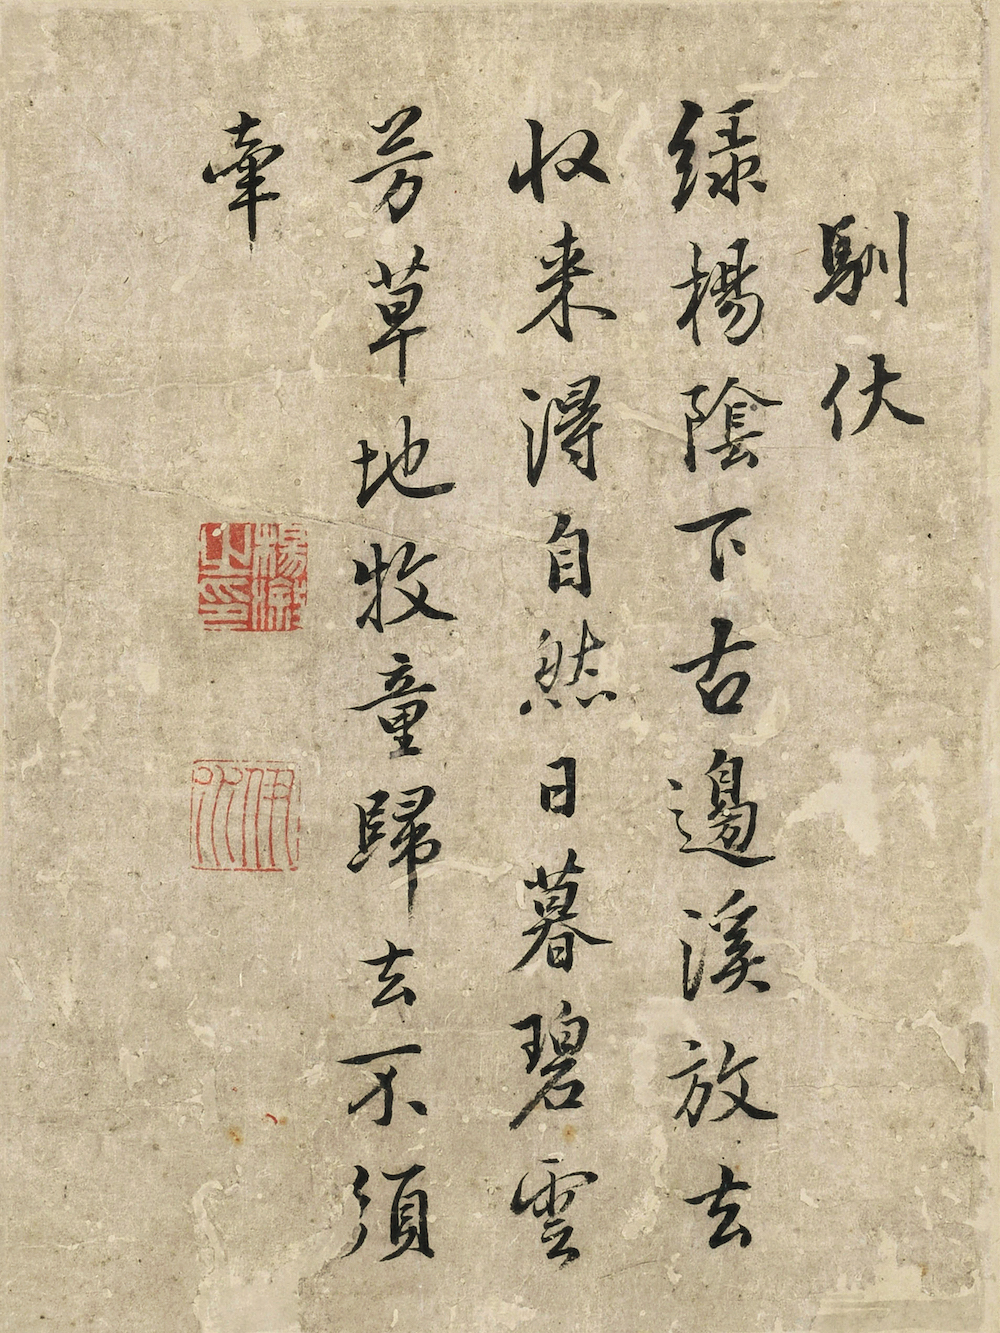 馴伏
綠楊陰下古邊溪放去
収来淂自然日暮碧雲
芳草地牧童歸去不須
牽